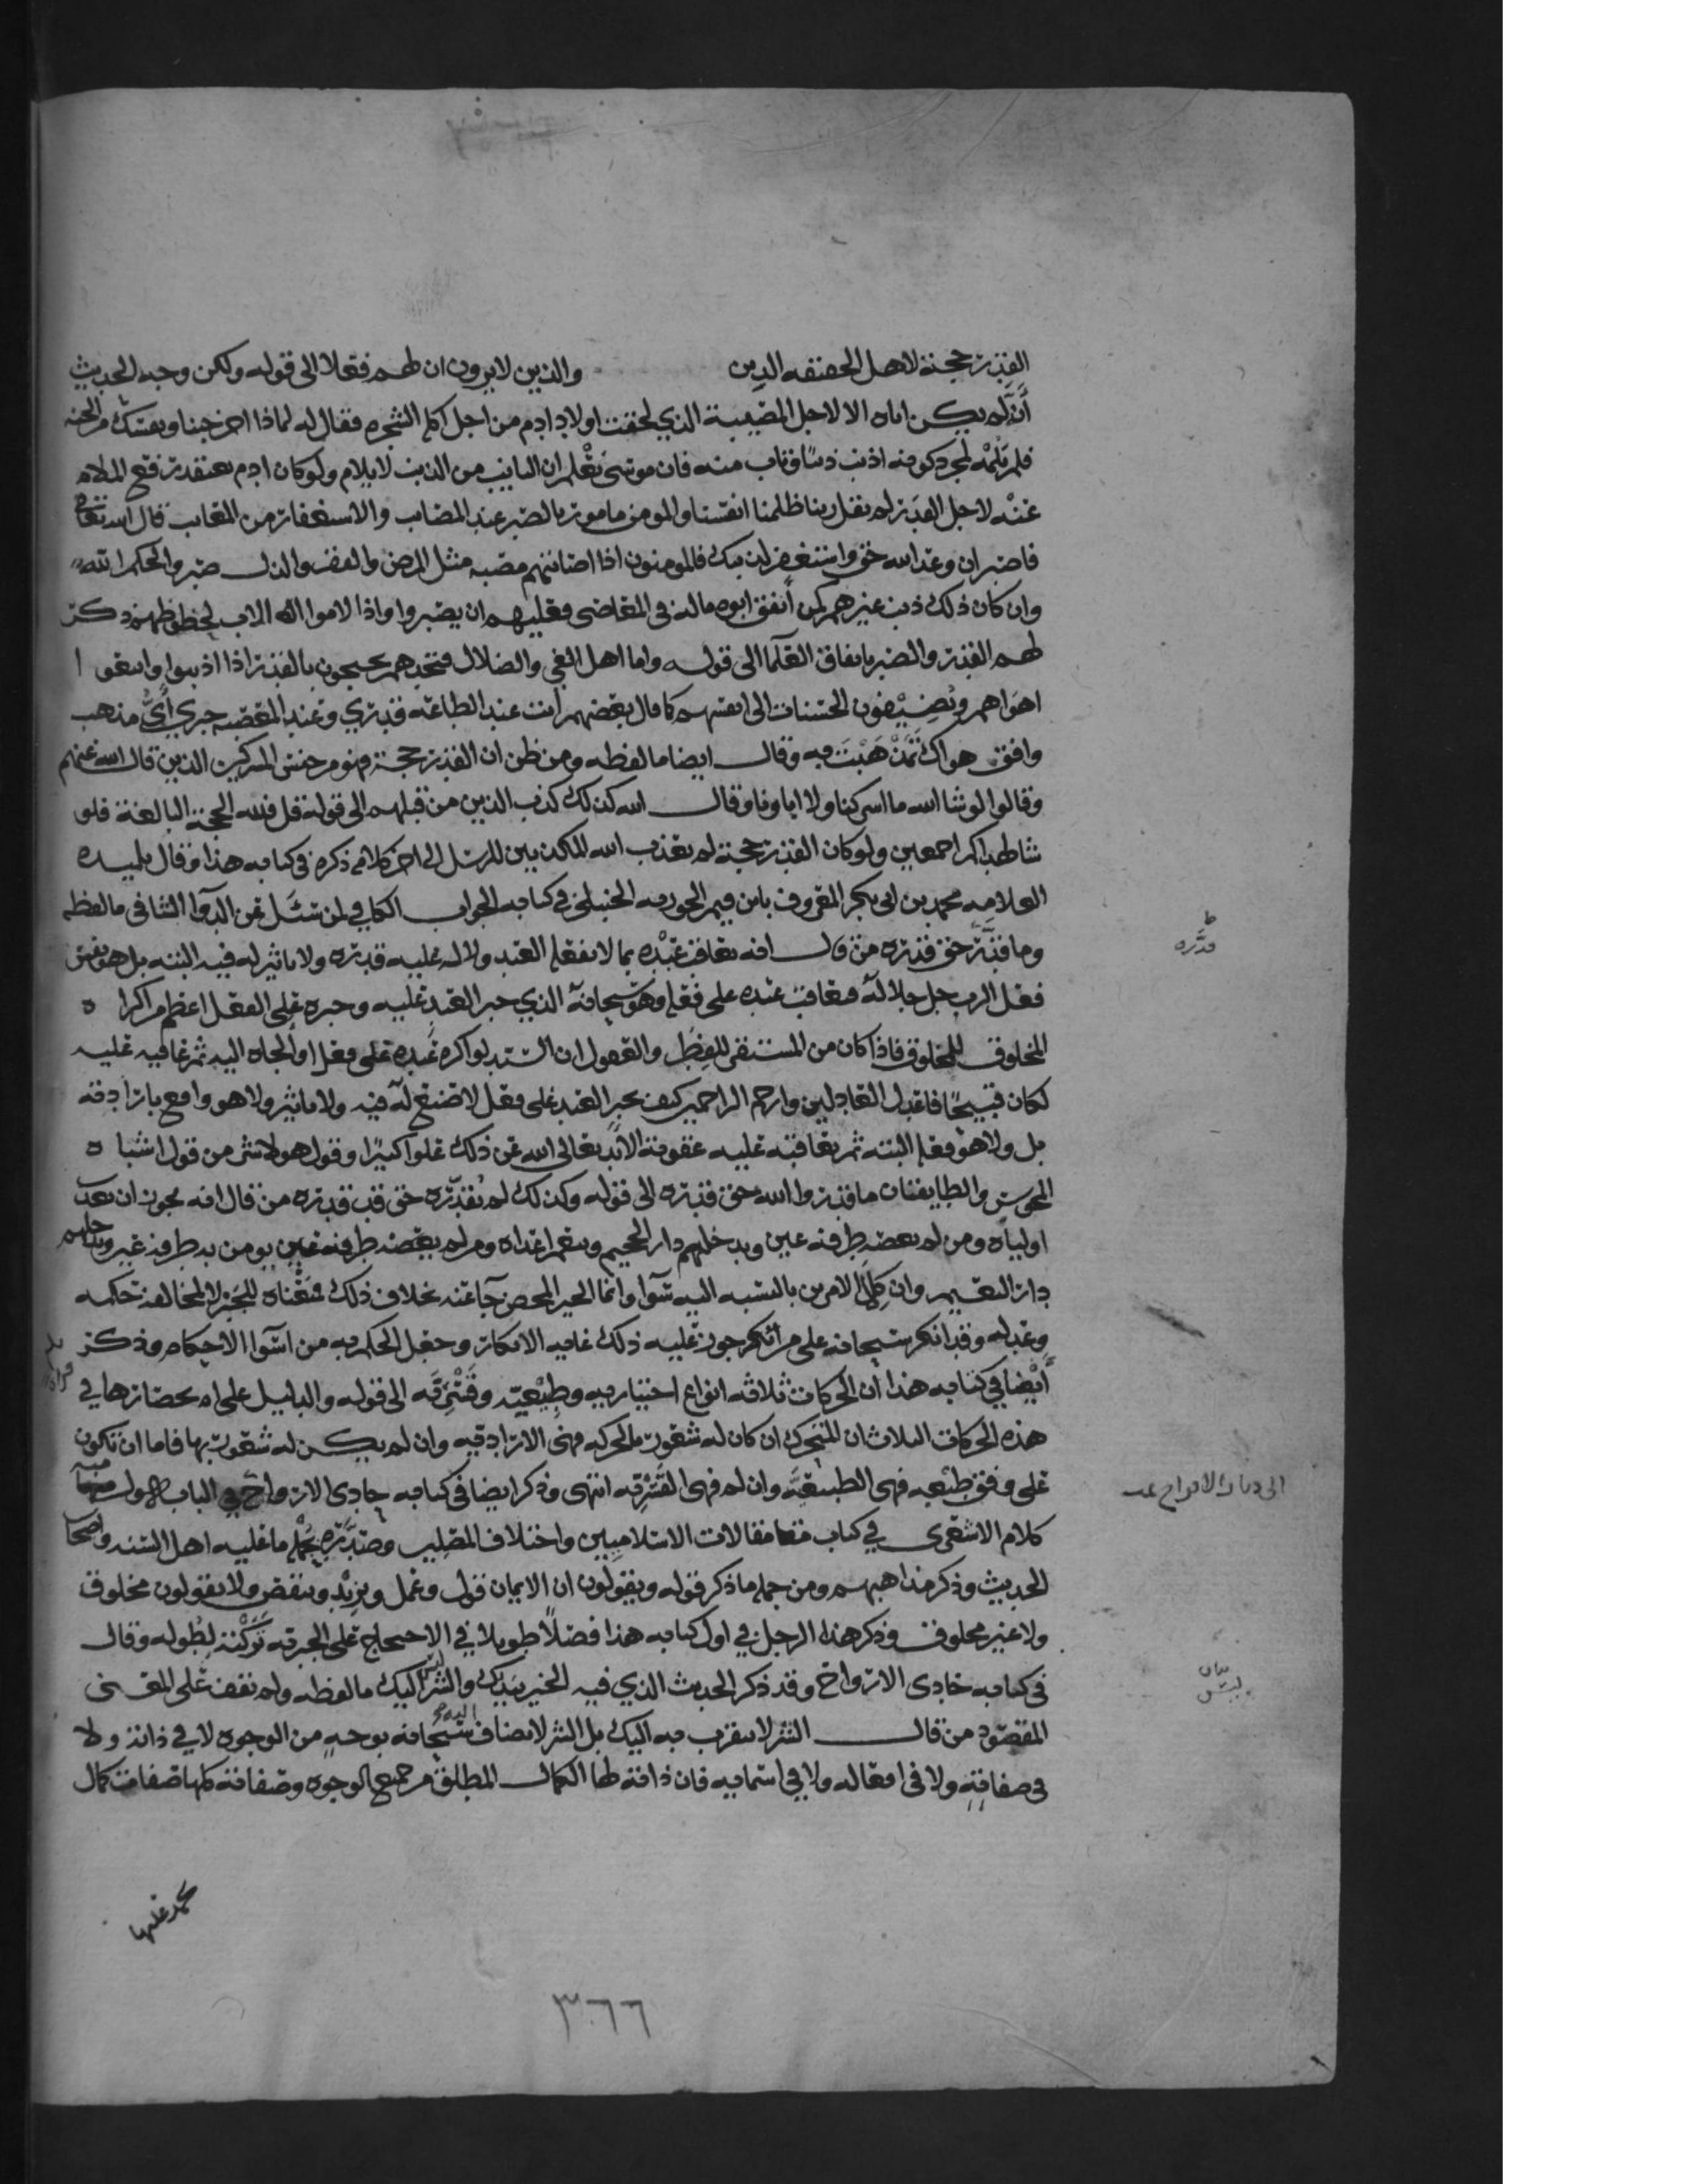 القدر حجة لاهل الحقيقه الذين والذين لا يرون ان لهم فعلا الى قوله ولكن وجه الحديث
أنه لم يكن اباه الا لاجل المصيبة الذي لحقت اولاد ادم من اجل اكله الشجره فقال له لماذا اخرجتنا ونفسك من الجنه
فلم يلمه لمجرد كونه اذنب ذنبا وتاب منه فان موسى يعلم ان التايب من الذنب لا يلام ولو كان ادم يعتقد رفع الملام
عنه لاجل القدر لم يقل ربنا ظلمنا انفسنا والمومن مامور بالصبر عند المصاب والاستغفار من المعايب قال الله تعالى
فاصبر ان وعد الله حق واستغفر لذنبك فالمومنون اذا اصابتهم مصيبه مثل المرض والفقر والذل صبروا لحكم الله
وان كان ذلك ذنب غيرهم كمن أنفق ابوه ماله في المعاصي فعليهم ان يصبروا واذا لاموا الاب لحظوظهم ذكر
لهم القدر والصبر باتفاق العلما الى قوله واما اهل الغي والضلال فتجدهم يحتجون بالقدر اذا اذنبوا واتبعوا
اهواهم ويُضِيْفون الحسنات الى انفسهم كما قال بعضهم أنت عند الطاعه قدري وعند المعصيه جبري أيُّ مذهب
وافق هواك تَمَذْهَبْتَ به وقال ايضا ما لفظه ومن ظن ان القدر حجة فهو من جنس المشركين الذين قال الله عنهم
وقالوا لو شا الله ما اشركنا ولا اباونا وقال الله كذلك كذب الذين من قبلهم الى قوله قل فلله الحجة البالغة فلو
شا لهداكم اجمعين ولو كان القدر حجة لم يعذب الله المكذبين للرسل الى اخر كلام ذكره في كتابه هذا وقال تلميذه
العلامه محمد بن ابي بكر المعروف بابن قيم الجوزيه الحنبلي في كتابه الجواب الكافي لمن سَئَل عن الدوا الشافي ما لفظه
وما قدَّر حق قدره من قال انه يعاقب عبْده بما لا يفعله العبد ولا له عليه قدره ولا تاثير له فيه البته بل هو نفس
فعل الرب جل جلاله فيعاقب عبده على فعله وهو سبحانه الذي جبر العبد عليه وجبره على الفعل اعظم من اكراه
المخلوق للمخلوق فاذا كان من المستقر في الفِطَر والعقول ان السيد لو اكره عبده على فعل او الجاه اليه ثم عاقبه عليه
لكان قبيحًا فاعدل العادلين وارحم الراحمين كيف يجبر العبد على فعل لا صنع له فيه ولا تاثير ولا هو واقع بارادته
بل ولا هو فعله البته ثم يعاقبه عليه عقوبة الابد تعالى الله عن ذلك علوا كبيرًا وقول هولا شر من قول اشباه
المجوس والطايفتان ما قدروا الله حق قدره الى قوله وكذلك لم يُقدّره حق قدره من قال انه يجوز ان يعذب
اولياه ومن لم يعصه طرفة عين ويدخلهم دار الجحيم وينعم اعداه ومن لم يومن به طرفة عين ويدخلهم
دار النعيم وان كِلا الامرين بالنسبه اليه سَوا وانما الخبر المحض جا عنه بخلاف ذلك فمنعناه للخبر لا لمخالفة حكمه
وعدله وقد انكر سبحانه على من جوز عليه ذلك غايه الانكار وجعل الحكم به من اسوا الاحكام وذكر
أيْضا في كتابه هذا أن الحركات ثلاثه انواع اختياريه وطبِيْعيّه وقَسْرِيَّه الى قوله والدليل على انحصارها في
هذه الحركات الثلاث ان المتحرك ان كان له شعور بالحركه فهي الاراديه وان لم يكن له شعور بها فاما ان تكون
على وفق طبعه فهي الطبيعيَّه وان لا فهي القَسْرِيه انتهى وذكر ايضا في كتابه حادي الارواح في الباب الاول
كلام الاشعري في كتاب مقالات الاسلاميين واختلاف المصلين وصَدَّره بجُمْله ما عليه اهل السنه واصحاب
الحديث وذكر مذاهبهم ومن جمله ما ذكر قوله ويقولون ان الايمان قول وعمل ويزيْد وينقص ولا يقولون مخلوق
ولا غير مخلوق وذكر هذا الرجل في اول كتابه هذا فصلًا طويلا في الاحتجاج على الجبريه تَرَكْته لِطُوله وقال
في كتابه حادى الارواح وقد ذكر الحديث الذي فيه الخير بيديك والشر ليس اليك ما لفظه ولم يقف على المعنى
المقصود من قال الشر لا يتقرب به اليك بل الشر لا يضاف اليه سبحانه بوجهٍ من الوجوه لا في ذاته ولا
في صفاتِهِ ولا في افعاله ولا في اسمايه فان ذاته لها الكمال المطلق من جميع الوجوه وصفاته كلها صفات كمال
قدَّره
ط
الى ديار الافراح
بيان
ليس
٣٦٦